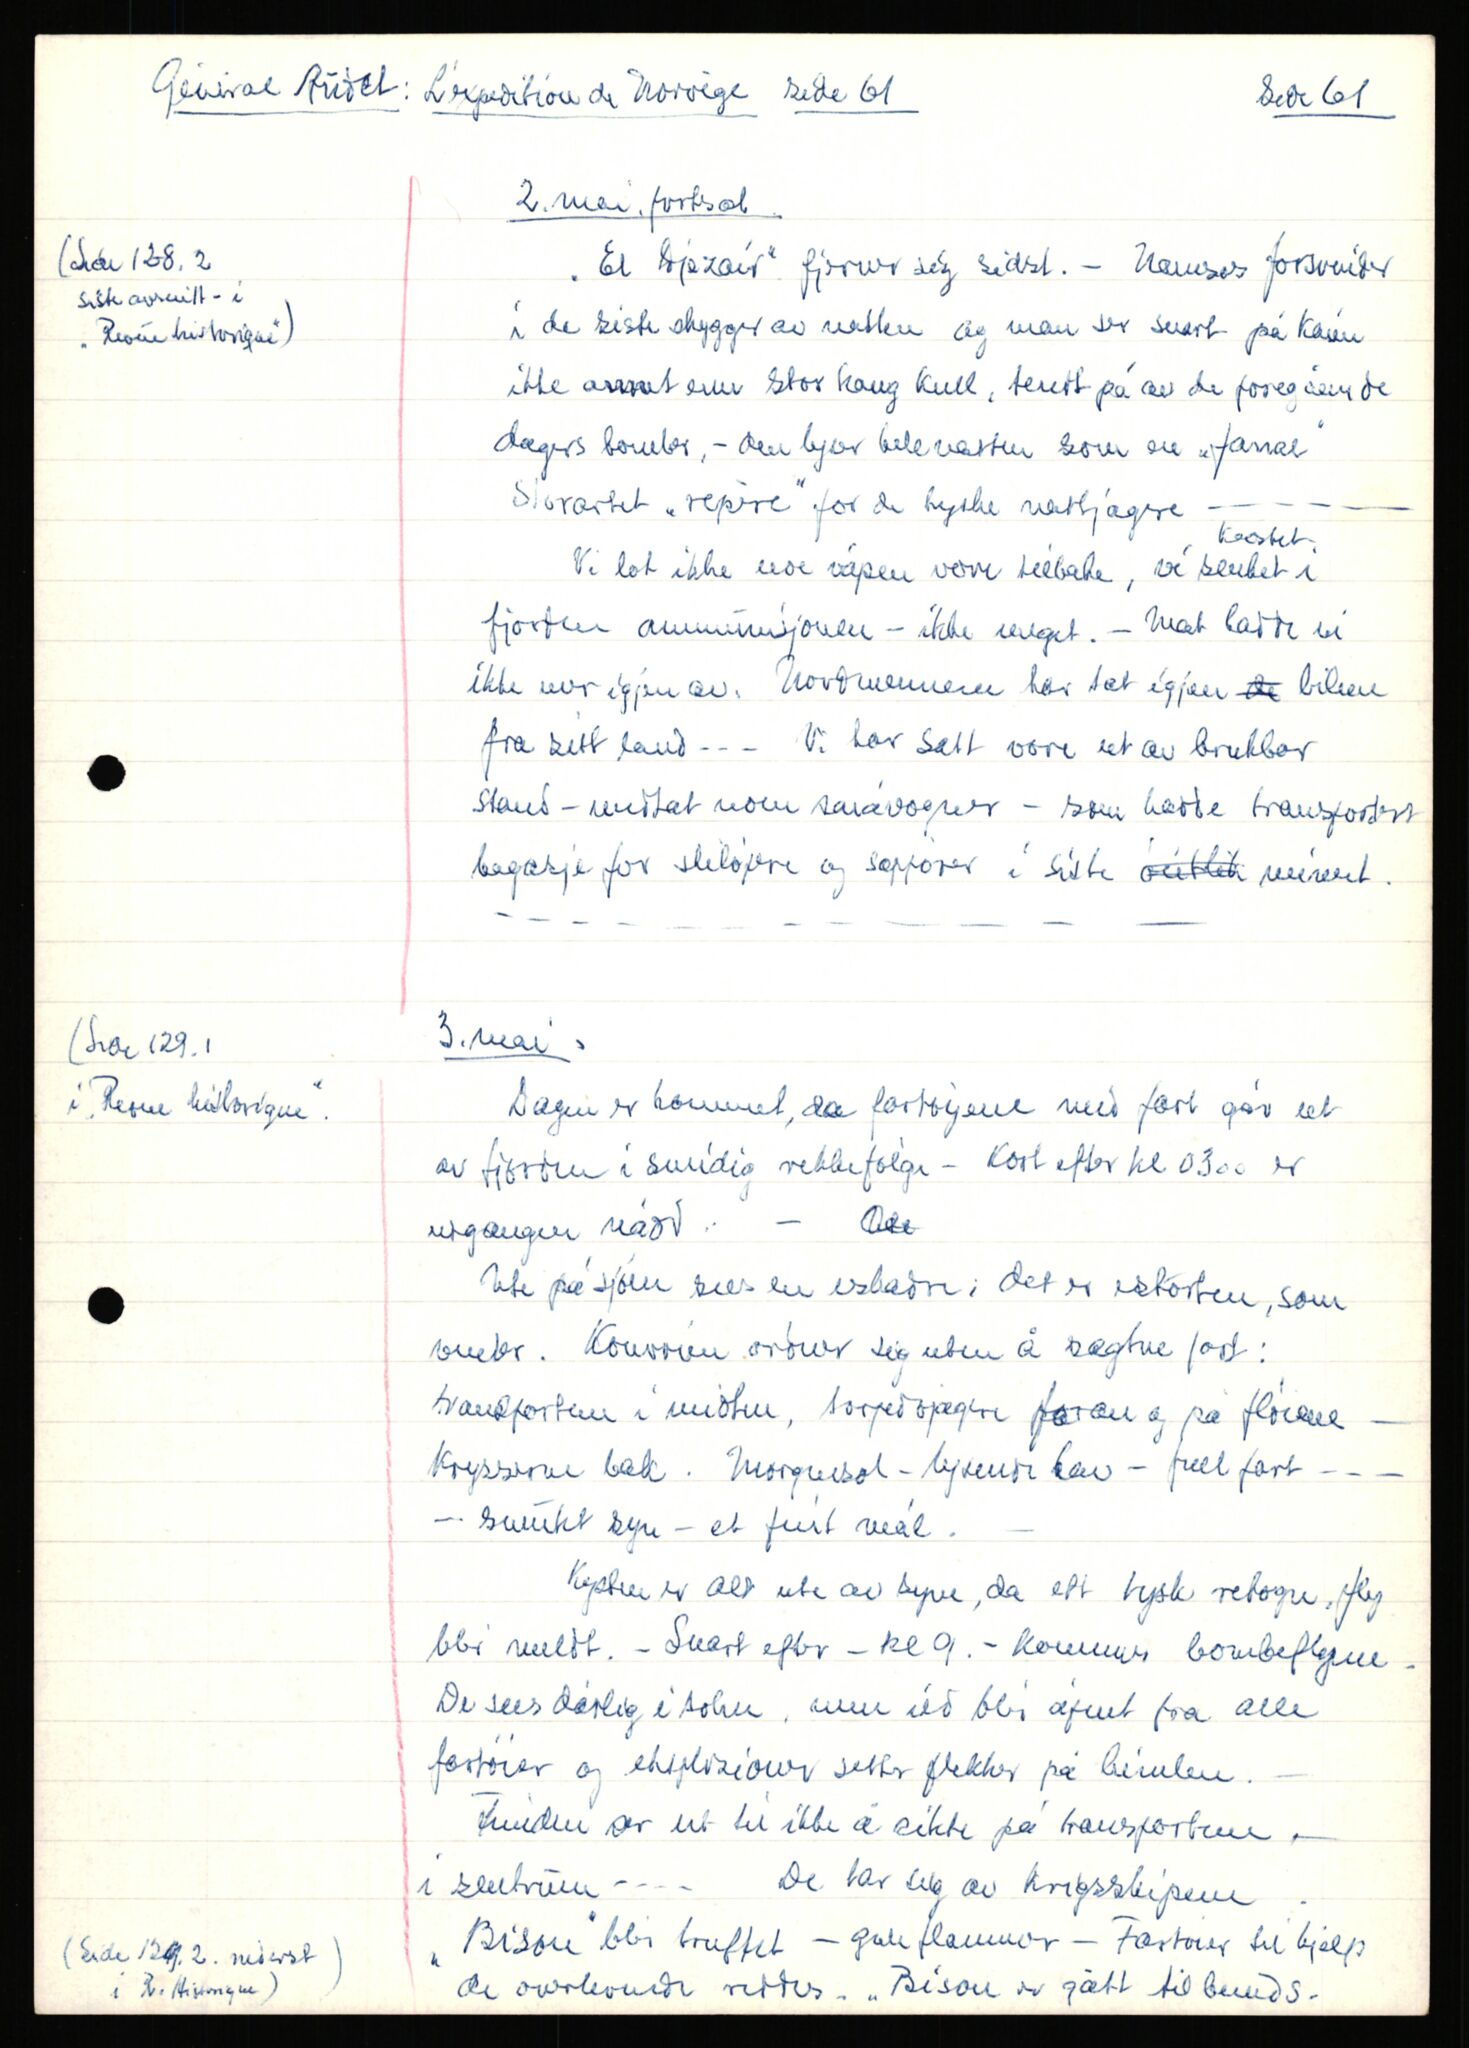 Général Audet: L'expedition de Norvège side 61
Side 61
2. mai. fortsat.
(Side 128.2
siste avsnitt - i
„Revue historique")
„El Djezair" fjerner sig sidst. - Namsos forsvinder
i de siste skygger av natten og man ser snart på Kaien
ikke annet enn stor haug kull, tendt på av de foregående
dagers bomber, - den lyser hele natten som en „fanal"
Storartet „repère" for de tyske nattjagere - - - - -
Vi lot ikke noe våpen være tilbake, vi senket i
kastet
fjorden ammunisjonen - ikke meget. - Mat hadde vi
ikke mer igjen av. Nordmennene har tat igjen de bilene
fra sitt land - - - Vi har satt våre ut av brukbar
stand - undtat noen småvogner - som hadde transportert
bagasje for skiløpere og sappører i siste minut.
3. mai.
(Side 129.1
i „Revue historique".
Dagen er kommet, da fartøyene med fart går ut
av fjorden i smidig rekkefølge - Kort efter kl 0300 er
utgangen nådd. - De
Ute på sjøen sees en eskadre; det er eskorten, som
venter. Konvoien ordner sig uten å sagtne fart:
transportene i midten, torpedojagere foran og på fløiene -
Krysserne bak. Morgensol - lysende hav - full fart - - -
- smukt syn - et fint mål. -
Kysten er alt ute av syne, da ett tysk rekogn. fly
blir meldt. - Snart efter - kl 9. - kommer bombeflyene -
De sees dårlig i solen, men ild blir åpnet fra alle
fartøier og eksplosioner setter flekker på himlen. -
Fienden ser ut til ikke å sikte på transportene -
i sentrum - - - - De tar sig av krigsskipene.
„Bison" blir truffet - gule flammer - Fartøier til hjelp
(Side 129.2. nederst
i R. Historique)
de overlevende reddes. „Bison er gått tilbunds.